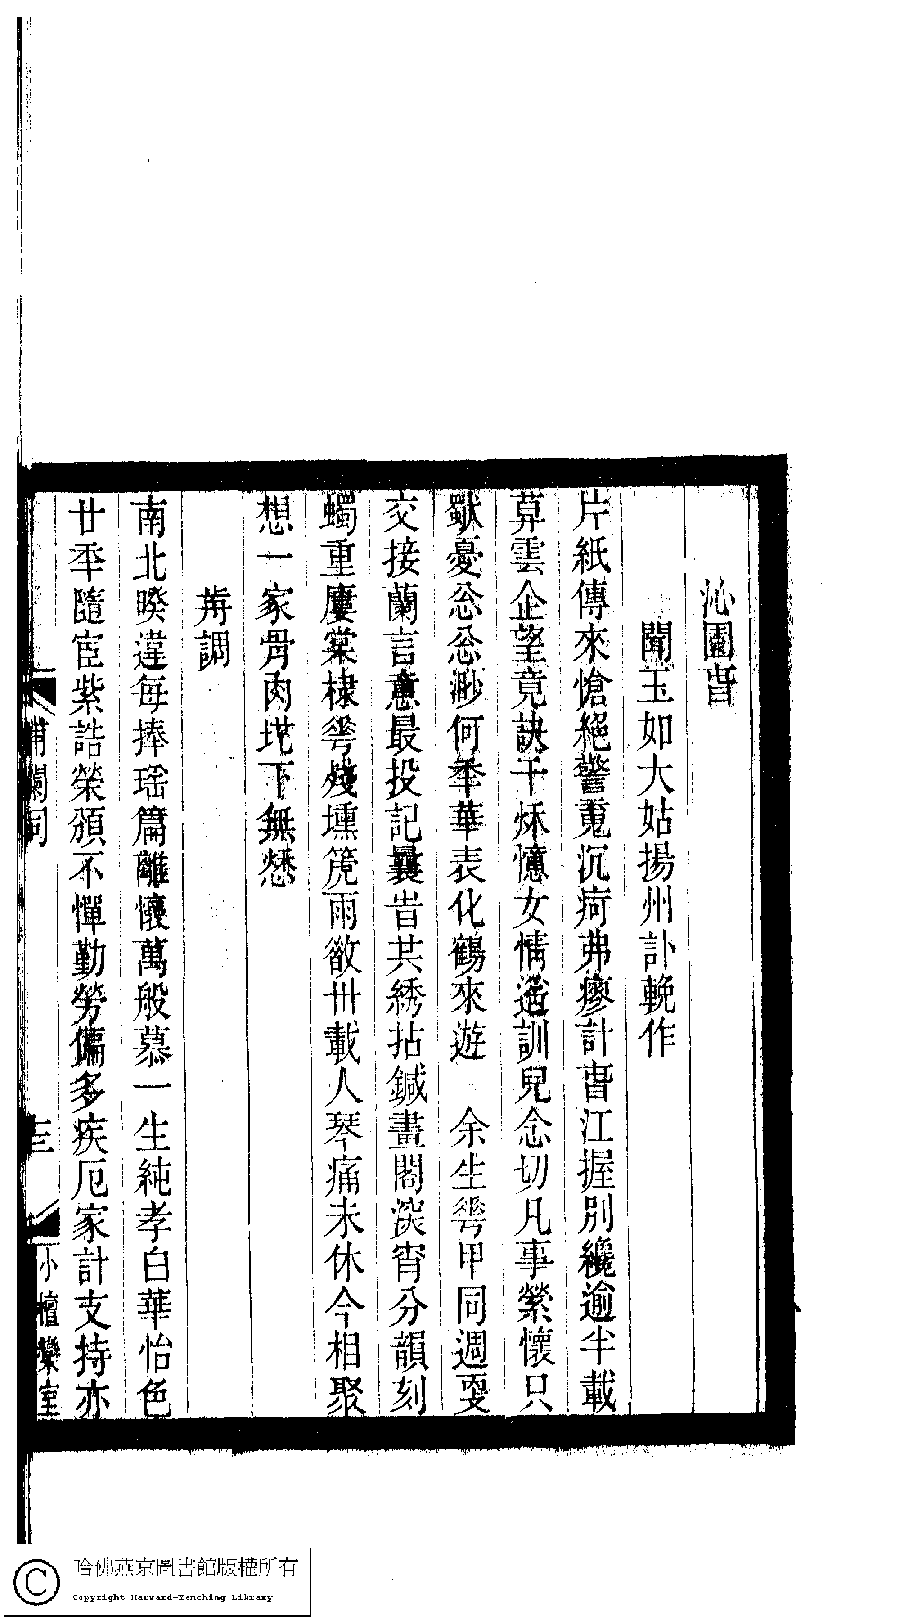 沁園旾
聞玉如大姑揚州訃輓作
片紙傳來愴絕驚䰟沉疴弗瘳計旾江握別纔逾半載
算雲企望竟訣千秌憶女情遙訓兒念切凡事縈懷只
歛憂忩忩渺何年華表化鶴來遊　余生雩甲同週㪅
交接蘭言意最投記曩昔共綉拈鍼畫閣深宵分韻刻
蠋重廔棠棣雩殘壎箎雨欲卅載人琴痛未休今相聚
想一家骨肉地下無愁
歬調
南北暌違每捧瑤篇離懷萬般慕一生純孝白華怡色
廿年隨宦紫誥榮頒不憚勤勞偏多疾厄家計支持亦
三
小檀欒室
哈佛燕京圖書館版權所有
Copyright Harvard-Yenching Library